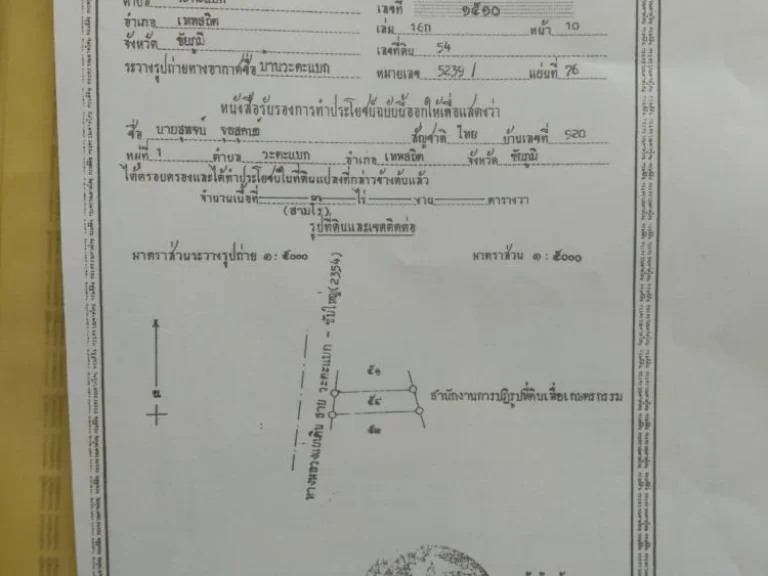 ตำบล วะตะแบก เลขที่ ๑๕๑๐
อำเภอ เทพสถิต เล่ม 16ก หน้า 10
จังหวัด ชัยภูมิ เลขที่ดิน 54
ระวางรูปถ่ายทางอากาศชื่อ บ้านวะตะแบก หมายเลข 5239 I แผ่นที่ 76
หนังสือรับรองการทำประโยชน์ฉบับนี้ออกให้เพื่อแสดงว่า
ชื่อ นายสุพจน์ สัญชาติ ไทย บ้านเลขที่ 920
หมู่ที่ 1 ตำบล วะตะแบก อำเภอ เทพสถิต จังหวัด ชัยภูมิ
ได้ครอบครองและได้ทำประโยชน์ในที่ดินแปลงที่กล่าวข้างต้นแล้ว
จำนวนเนื้อที่ ๓ ไร่ - งาน - ตารางวา
(สามไร่)
รูปที่ดินและเขตติดต่อ
มาตราส่วนระวางรูปถ่าย ๑ : ๕๐๐๐ มาตราส่วน ๑ : ๕๐๐๐
ทางหลวงแผ่นดิน สาย วะตะแบก - ซับใหญ่(2354)
น
๕๑
๕๔ สำนักงานการปฏิรูปที่ดินเพื่อเกษตรกรรม